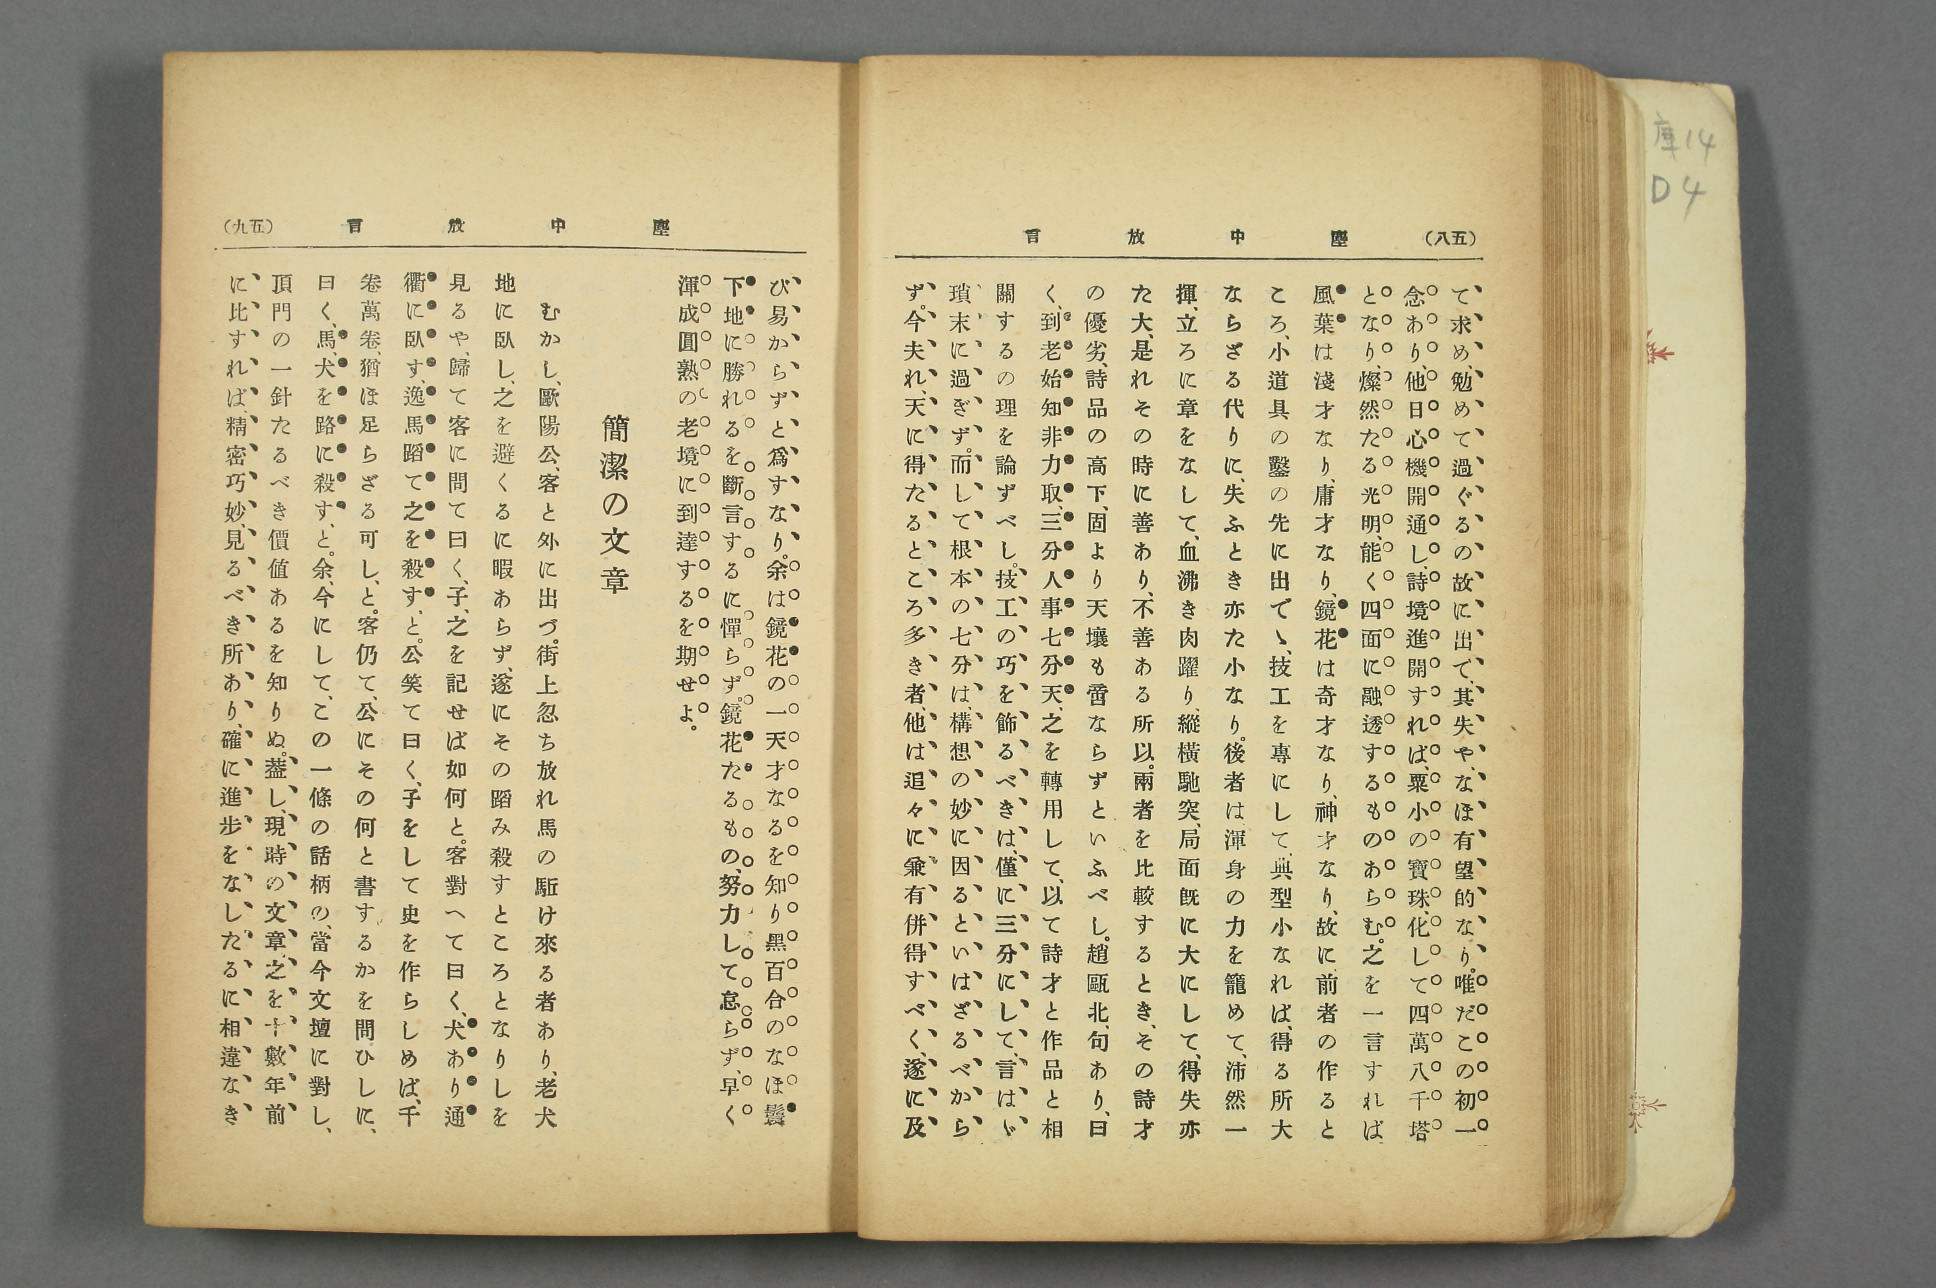 (五八)　塵中放言
て求め、勉めて過ぐるの故に出で、其失や、なほ有望的なり。唯だこの初一
念あり、他日心機開通し、詩境進開すれば、粟小の寶珠、化して四萬八千塔
となり、燦然たる光明、能く四面に融透するものあらむ。之を一言すれば、
風葉は淺才なり、庸才なり、鏡花は奇才なり、神才なり、故に前者の作ると
ころ、小道具の鑿の先に出でゝ、技工を專にして、典型小なれば、得る所大
ならざる代りに、失ふとき亦た小なり。後者は、渾身の力を籠めて、沛然一
揮、立ろに章をなして、血沸き肉躍り、縱橫馳突、局面既に大にして、得失亦
た大、是れその時に善あり、不善ある所以。兩者を比較するとき、その詩才
の優劣、詩品の高下、固より天壤も啻ならずといふべし。趙甌北、句あり、曰
く、到老始知非力取、三分人事七分天、之を轉用して、以て詩才と作品と相
關するの理を論ずべし。技工の巧を飾るべきは、僅に三分にして、言はゞ
瑣末に過ぎず。而して根本の七分は、構想の妙に因るといはざるべから
ず。今夫れ、天に得たるところ多き者、他は追々に兼有併得すべく、遂に及
(五九)　塵中放言
び易からずと爲すなり。余は鏡花の一天才なるを知り黑百合のなほ鬘
下地に勝れるを斷言するに憚らず。鏡花たるもの、努力して怠らず、早く
渾成圓熟の老境に到達するを期せよ。
簡潔の文章
むかし、歐陽公、客と外に出づ。街上忽ち放れ馬の駈け來る者あり、老犬
地に臥し、之を避くるに暇あらず、遂にその蹈み殺すところとなりしを
見るや、歸て客に問て曰く、子、之を記せば如何と。客對へて曰く、犬あり通
衢に臥す、逸馬蹈て之を殺す、と。公笑て曰く、子をして史を作らしめば、千
卷萬卷、猶ほ足らざる可し、と。客仍て、公にその何と書するかを問ひしに、
曰く、馬、犬を路に殺す、と。余、今にして、この一條の話柄の、當今文壇に對し、
頂門の一針たるべき價値あるを知りぬ。蓋し、現時の文章、之を十數年前
に比すれば、精密巧妙、見るべき所あり、確に進步をなしたるに相違なき
庫14
D4